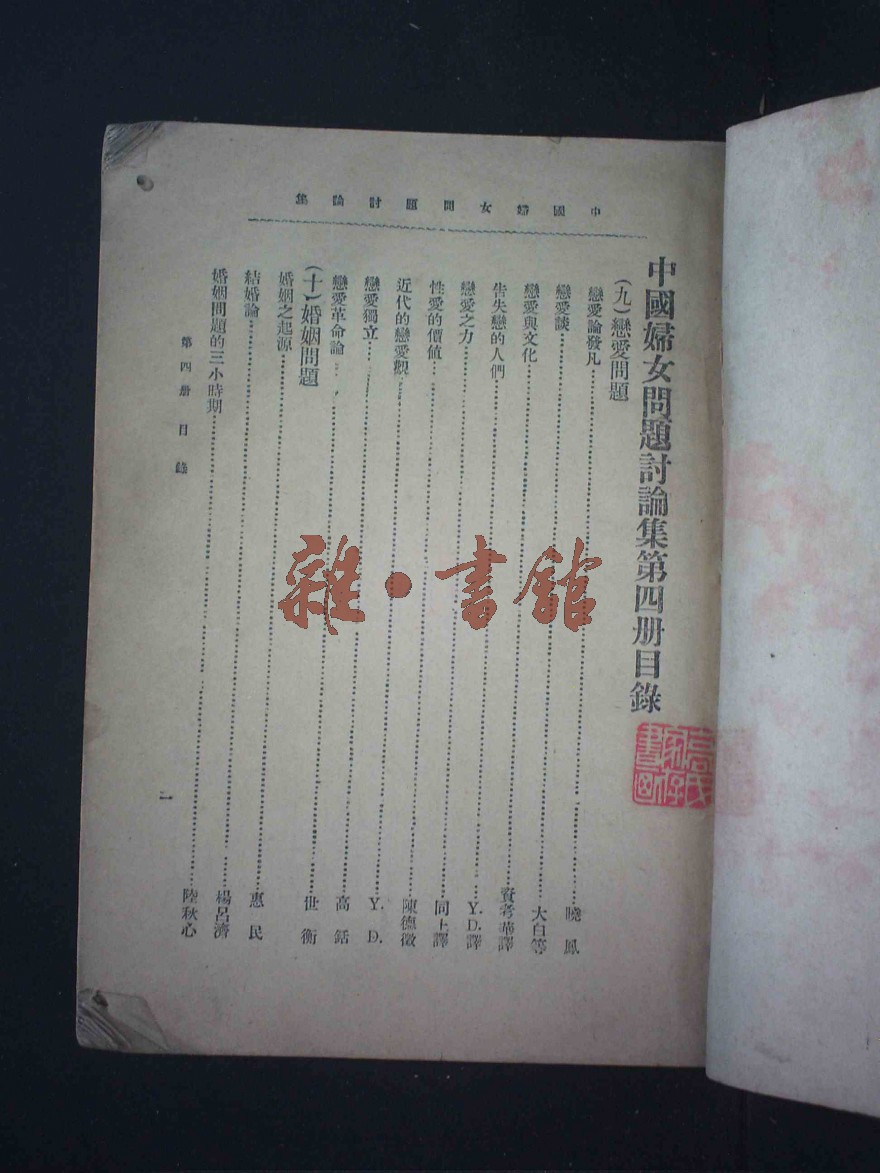 中國婦女問題討論集
中國婦女問題討論集第四册目錄
(九)戀愛問題
戀愛論發凡……曉鳳
戀愛談……大白等
戀愛與文化……華譯
告失戀的人們……Y.D.譯
戀愛之力……同上譯
性愛的價値……陳德徵
近代的戀愛觀……Y.D.
戀愛獨立……高銛
戀愛革命論……世衡
(十)婚姻問題
婚姻之起源……惠民
結婚論……楊呂濟
婚姻問題的三小時期……陸秋心
第四册目錄
一
雜·書館